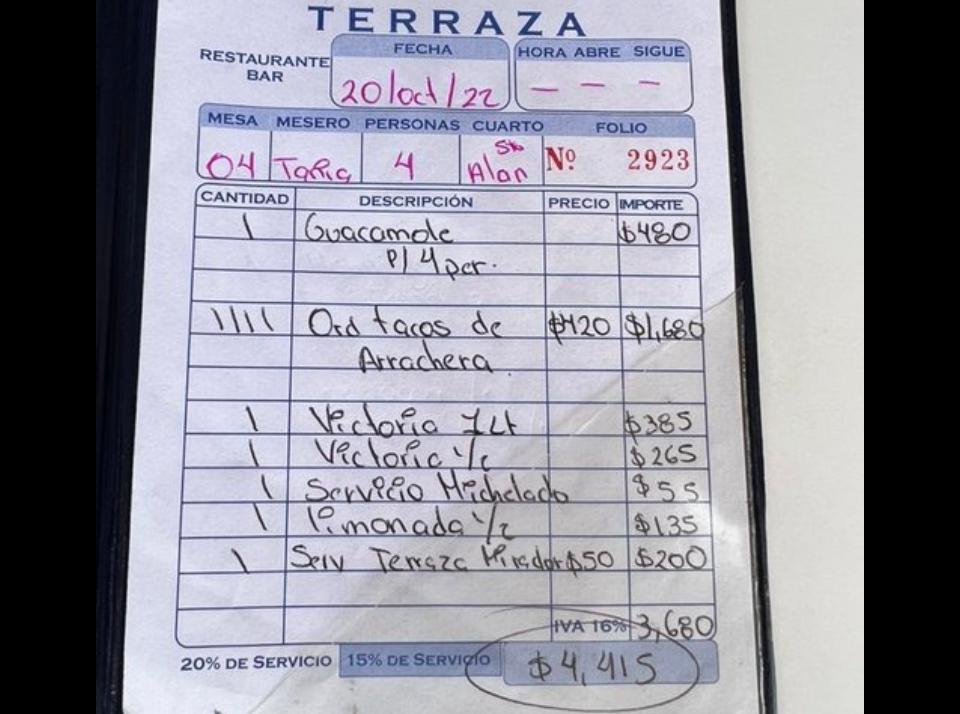 TERRAZA
RESTAURANTE BAR
FECHA
20/oct/22
HORA ABRE SIGUE
— — —
MESA MESERO PERSONAS CUARTO FOLIO
04 Tania 4 Alan Nº 2923
CANTIDAD DESCRIPCIÓN PRECIO IMPORTE
1 Guacamole $480
P/ 4 per.
1111 Ord tacos de $420 $1,680
Arrachera
1 Victoria 1Lt $385
1 Victoria $265
1 Servicio Michelado $55
1 limonada 1/2 $135
1 Serv Terraza Mirador $50 $200
IVA 16% 3,680
20% DE SERVICIO 15% DE SERVICIO $4,415